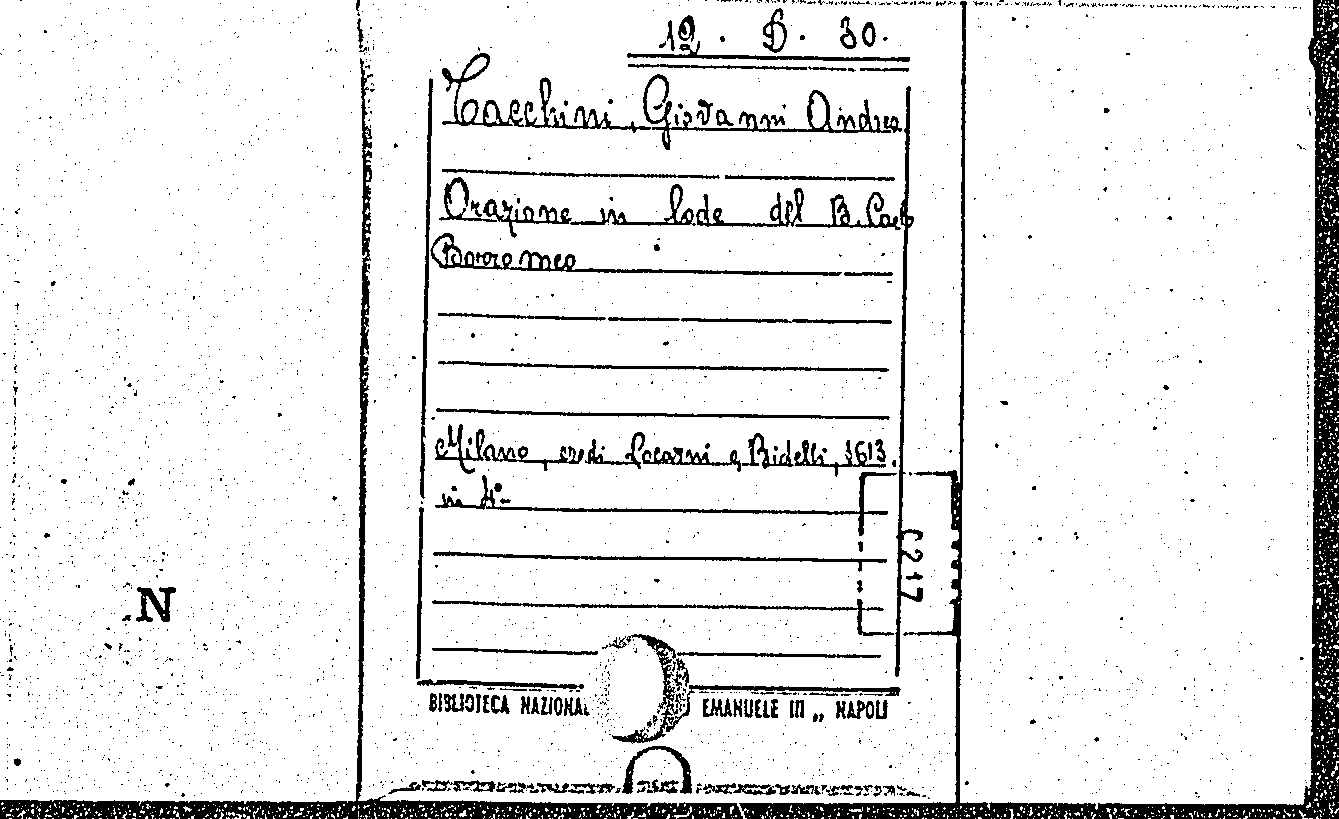 12. D. 30.
Tacchini, Giovanni Andrea
Orazione in lode del B. Carlo
Borromeo
Milano, eredi Locarni e Bidelli, 1613.
in 4°-
C217
.N
BIBLIOTECA NAZIONAL EMANUELE III „ NAPOLI